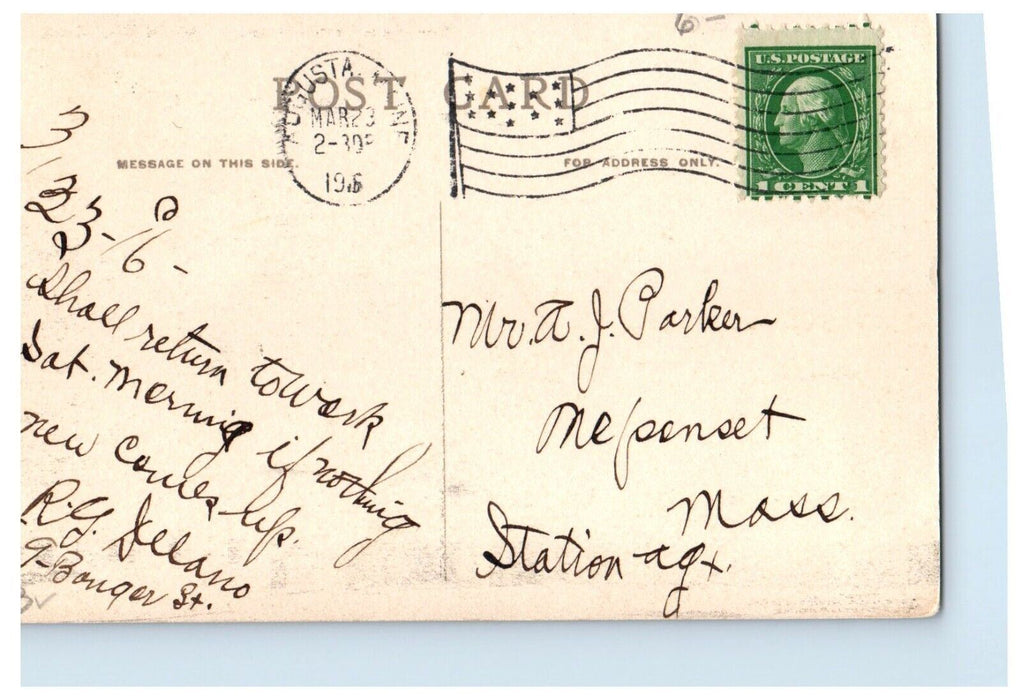 6-
POST CARD
AUGUSTA
MAR 23
2-30P
U.S. POSTAGE
1 CENT 1
MESSAGE ON THIS SIDE.
FOR ADDRESS ONLY.
3/23-16-
Shall return to work
Sat. morning if nothing
new comes up.
R.G. Delano
9-Bangor St.
Mr. A. J. Parker
Neponset
Mass.
Station agt.